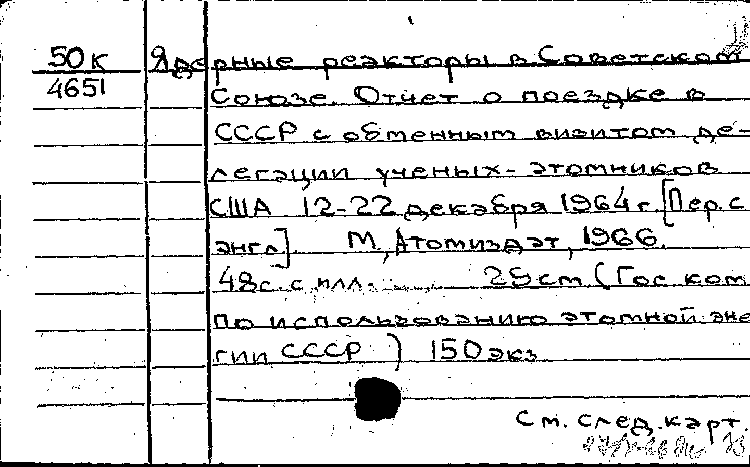 50к Ядерные реакторы в Советском
4651 Союзе. Отчет о поездке в
СССР с обменным визитом де-
легации ученых-атомников
США 12-22 декабря 1964 г. [Пер. с
англ]. М., Атомиздат, 1966.
48с. с илл. 29 cm (Гос ком
по использованию атомной эне
гии СССР) 150 экз
См. след. карт.